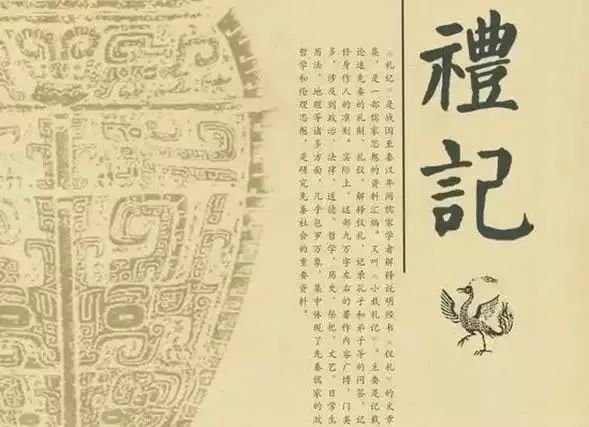 禮記
《礼记》是战国至秦汉年间儒家学者解释说明经书《仪礼》的文章
集，是一部儒家思想的资料汇编。又叫《小戴礼记》。主要是记载
论述先秦的礼制、礼仪，解释仪礼，记录孔子和弟子等的问答，记
修身作人的准则。实际上，这部九万字左右的著作内容广博，门类
多，涉及到政治、法律、道德、哲学、历史、祭祀、文艺、日常生
历法、地理等诸多方面，几乎包罗万象，集中体现了先秦儒家的政
哲学和伦理思想，是研究先秦社会的重要资料。